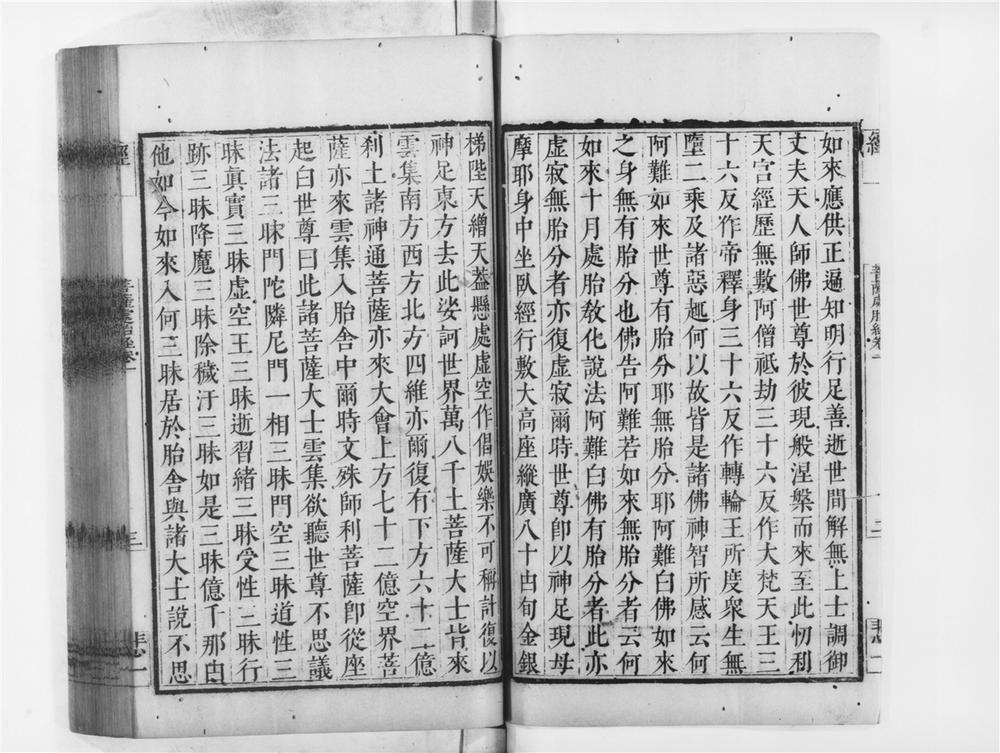 如來應供正遍知明行足善逝世間解無上士調御
丈夫天人師佛世尊於彼現般涅槃而來至此忉利
天宮經歷無數阿僧祇劫三十六反作大梵天王三
十六反作帝釋身三十六反作轉輪王所度衆生無
墮二乘及諸惡趣何以故皆是諸佛神智所感云何
阿難如來世尊有胎分耶無胎分耶阿難白佛如來
之身無有胎分也佛告阿難若如來無胎分者云何
如來十月處胎敎化說法阿難白佛有胎分者此亦
虛寂無胎分者亦復虛寂爾時世尊卽以神足現母
摩耶身中坐臥經行敷大高座縱廣八十由旬金銀
梯陛天繒天葢懸處虛空作倡娛樂不可稱計復以
神足東方去此娑訶世界萬八千土菩薩大士皆來
雲集南方西方北方四維亦爾復有下方六十二億
刹土諸神通菩薩亦來大會上方七十二億空界菩
薩亦來雲集入胎舍中爾時文殊師利菩薩卽從座
起白世尊曰此諸菩薩大士雲集欲聽世尊不思議
法諸三昧門陀隣尼門一相三昧門空三昧道性三
昧眞實三昧虛空王三昧逝習緒三昧受性三昧行
跡三昧降魔三昧除穢汙三昧如是三昧億千那由
他如今如來入何三昧居於胎舍與諸大士說不思
經
菩薩處胎經卷一
三
悲一